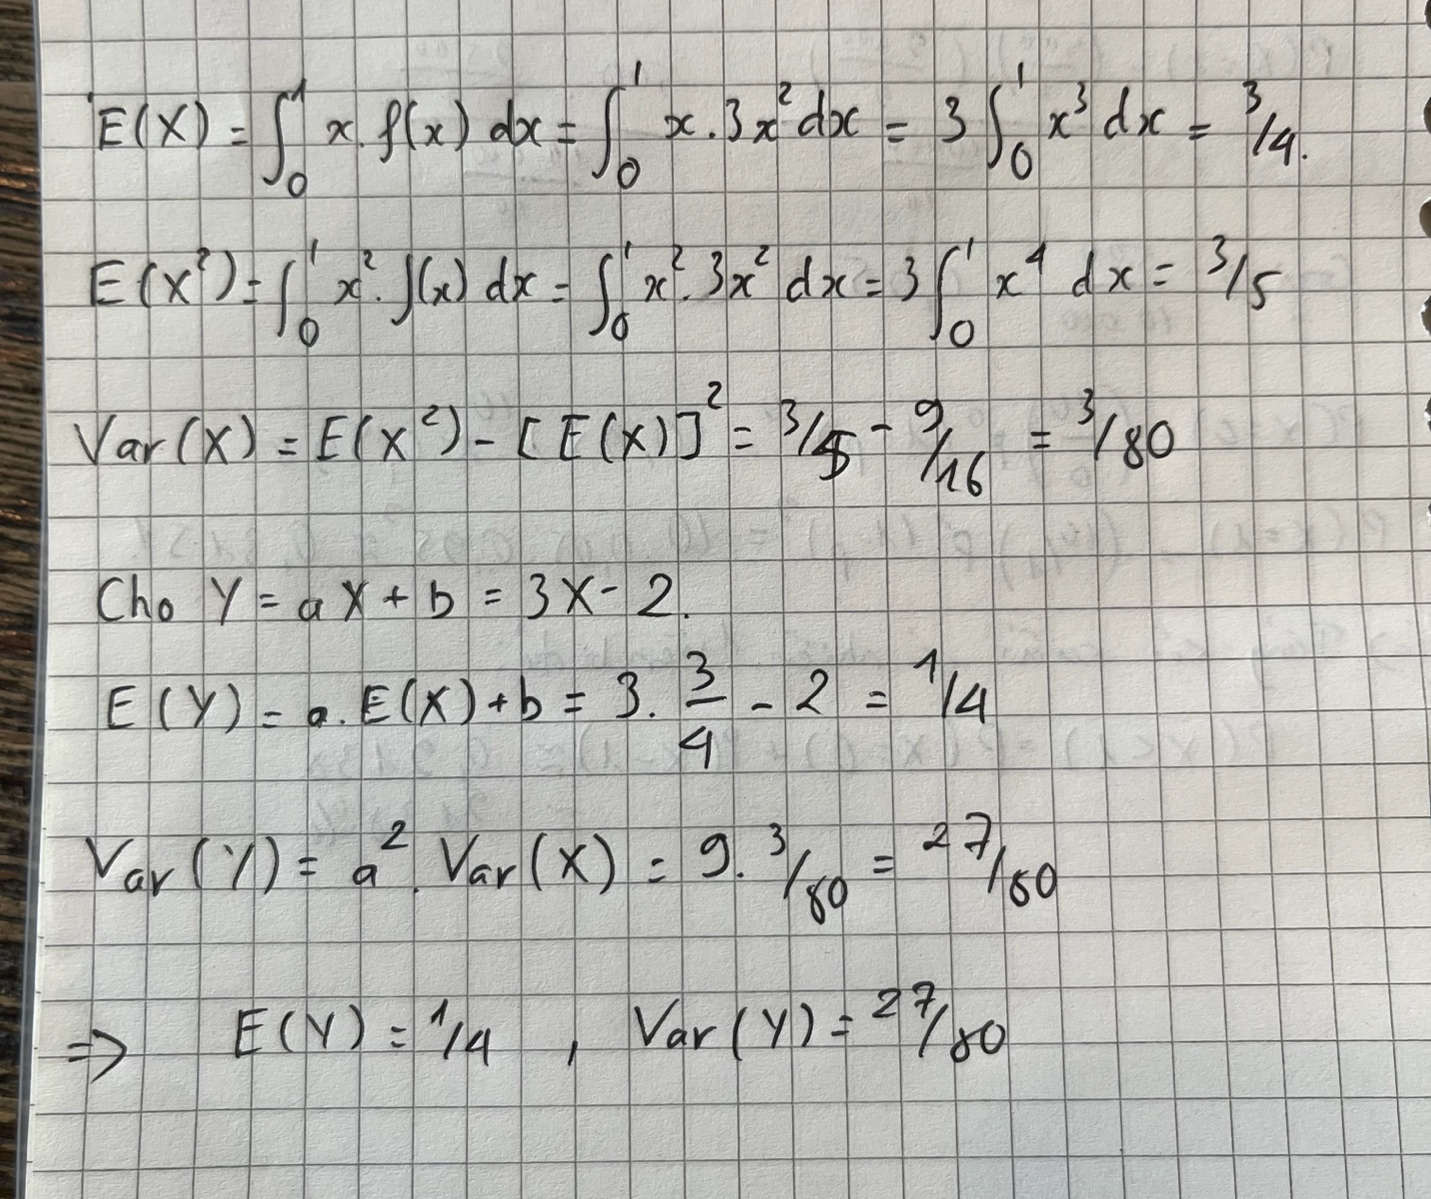 E(X) = ∫₀¹ x. f(x) dx = ∫₀¹ x . 3x² dx = 3 ∫₀¹ x³ dx = 3/4.
E(X²) = ∫₀¹ x². f(x) dx = ∫₀¹ x². 3x² dx = 3 ∫₀¹ x⁴ dx = 3/5
Var(X) = E(X²) - [E(X)]² = 3/5 - 9/16 = 3/80
Cho Y = aX + b = 3X - 2.
E(Y) = a. E(X) + b = 3. 3/4 - 2 = 1/4
Var(Y) = a². Var(X) = 9. 3/80 = 27/80
⇒ E(Y) = 1/4 , Var(Y) = 27/80